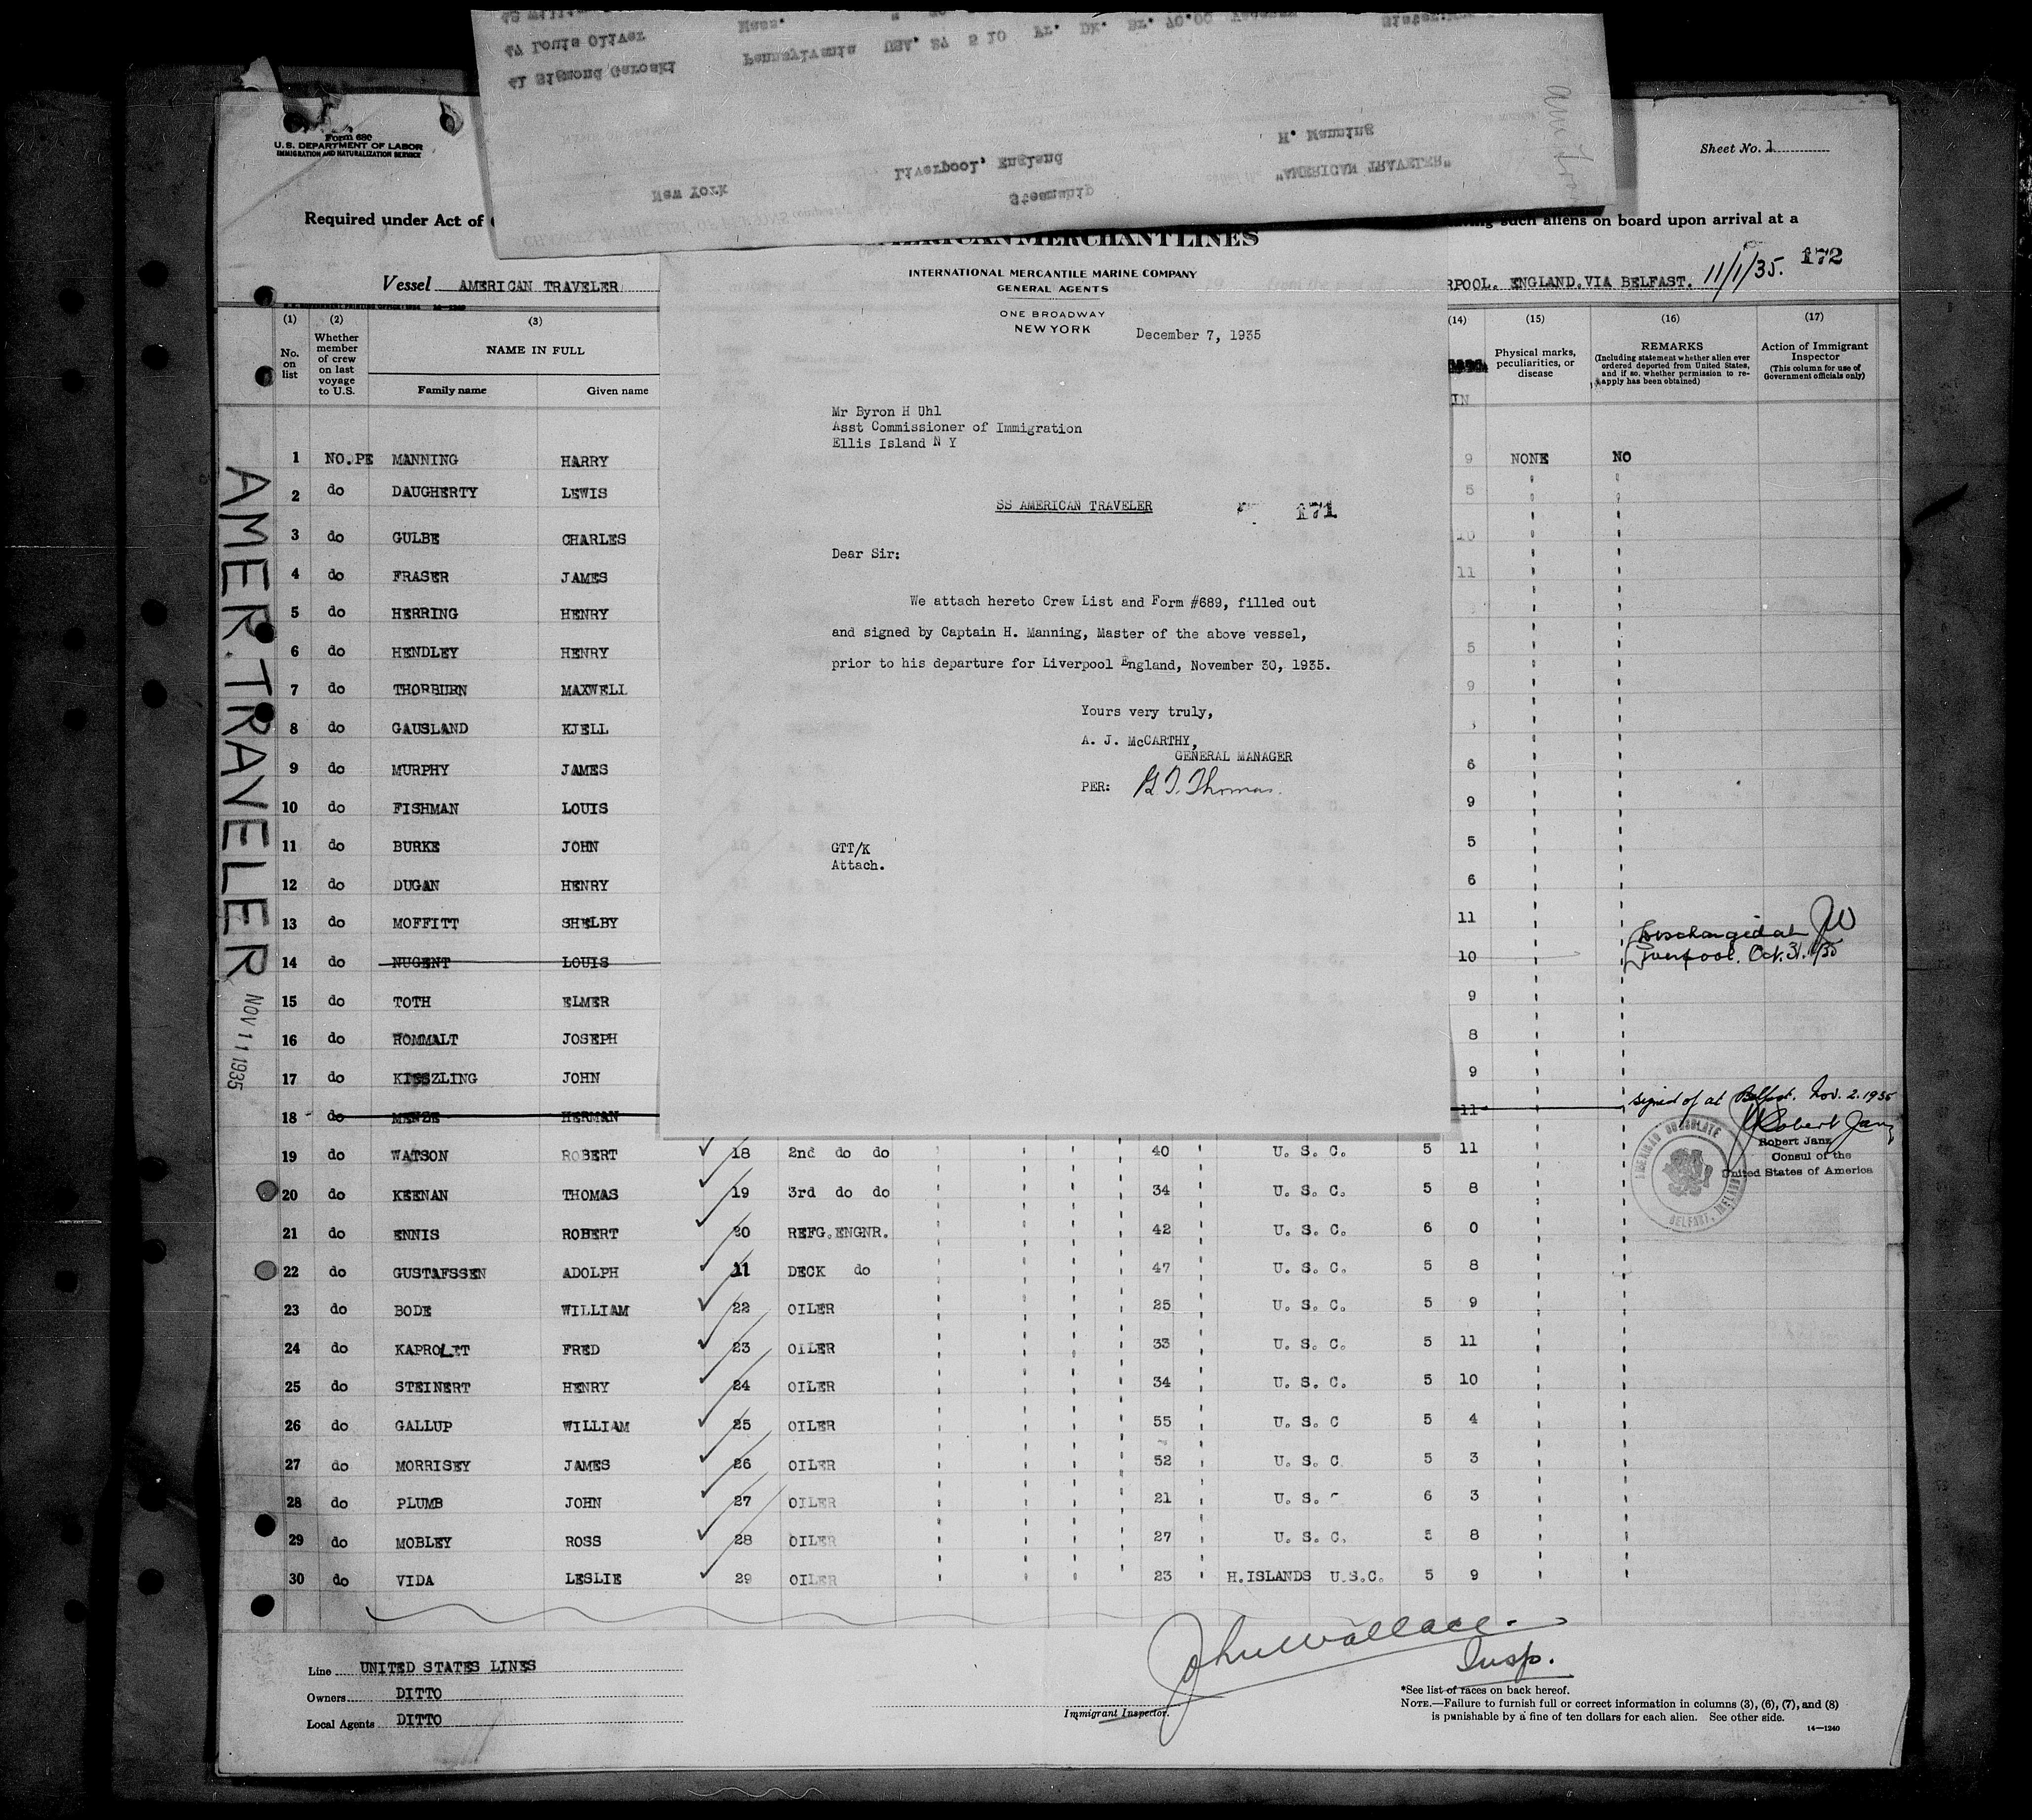 47 Louis Oliver Mass.
41 Sigmond Garoski Pennsylvania USA. 27 5 10 Fr. Dk. Br. 70.00
H. Manning
Liverpool, England
New York Steamship "AMERICAN TRAVELER"
Form 680
U.S. DEPARTMENT OF LABOR
IMMIGRATION AND NATURALIZATION SERVICE
Sheet No. 1
Required under Act of
such aliens on board upon arrival at a
172
Vessel AMERICAN TRAVELER
RPOOL. ENGLAND.VIA BELFAST. 11/1/35.
AMERICAN MERCHANT LINES
INTERNATIONAL MERCANTILE MARINE COMPANY
GENERAL AGENTS
ONE BROADWAY
NEW YORK
December 7, 1935
Mr Byron H Uhl
Asst Commissioner of Immigration
Ellis Island N Y
SS AMERICAN TRAVELER 171
Dear Sir:
We attach hereto Crew List and Form #689, filled out
and signed by Captain H. Manning, Master of the above vessel,
prior to his departure for Liverpool England, November 30, 1935.
Yours very truly,
A. J. McCARTHY,
GENERAL MANAGER
PER: G T. Thomas.
GTT/K
Attach.
(1) (2) (3) (14) (15) (16) (17)
No. on list
Whether member of crew on last voyage to U.S.
NAME IN FULL
Family name Given name
Physical marks, peculiarities, or disease
REMARKS
(Including statement whether alien ever ordered deported from United States, and if so, whether permission to re-apply has been obtained)
Action of Immigrant Inspector
(This column for use of Government officials only)
IN
1 NO.PE MANNING HARRY 9 NONE NO
2 do DAUGHERTY LEWIS 5
3 do GULBE CHARLES 10
4 do FRASER JAMES 11
5 do HERRING HENRY
6 do HENDLEY HENRY 5
7 do THORBURN MAXWELL 9
8 do GAUSLAND KJELL
9 do MURPHY JAMES 6
10 do FISHMAN LOUIS 9
11 do BURKE JOHN 5
12 do DUGAN HENRY 6
13 do MOFFITT SHELBY 11
14 do NUGENT LOUIS 10 Discharged at Liverpool. Oct. 31. 1935 JW
15 do TOTH ELMER 9
16 do HOMMALT JOSEPH 8
17 do KISSZLING JOHN 9
18 do MENZE HERMAN 11 signed of at Belfast. Nov. 2. 1935
Robert Janz
Robert Janz
Consul of the
United States of America
AMERICAN CONSULATE
BELFAST, IRELAND
19 do WATSON ROBERT 18 2nd do do 40 U. S. C. 5 11
20 do KEENAN THOMAS 19 3rd do do 34 U. S. C. 5 8
21 do ENNIS ROBERT 20 REFG.ENGNR. 42 U. S. C. 6 0
22 do GUSTAFSSEN ADOLPH 11 DECK do 47 U. S. C. 5 8
23 do BODE WILLIAM 22 OILER 25 U. S. C. 5 9
24 do KAPROLET FRED 23 OILER 33 U. S. C. 5 11
25 do STEINERT HENRY 24 OILER 34 U. S. C. 5 10
26 do GALLUP WILLIAM 25 OILER 55 U. S. C 5 4
27 do MORRISEY JAMES 26 OILER 52 U. S. C 5 3
28 do PLUMB JOHN 27 OILER 21 U. S. 6 3
29 do MOBLEY ROSS 28 OILER 27 U. S. C. 5 8
30 do VIDA LESLIE 29 OILER 23 H.ISLANDS U.S.C. 5 9
AMER. TRAVELER NOV 11 1935
John Wallace
Insp.
Line UNITED STATES LINES
Owners DITTO
Local Agents DITTO
Immigrant Inspector.
*See list of races on back hereof.
NOTE.—Failure to furnish full or correct information in columns (3), (6), (7), and (8)
is punishable by a fine of ten dollars for each alien. See other side.
14—1240